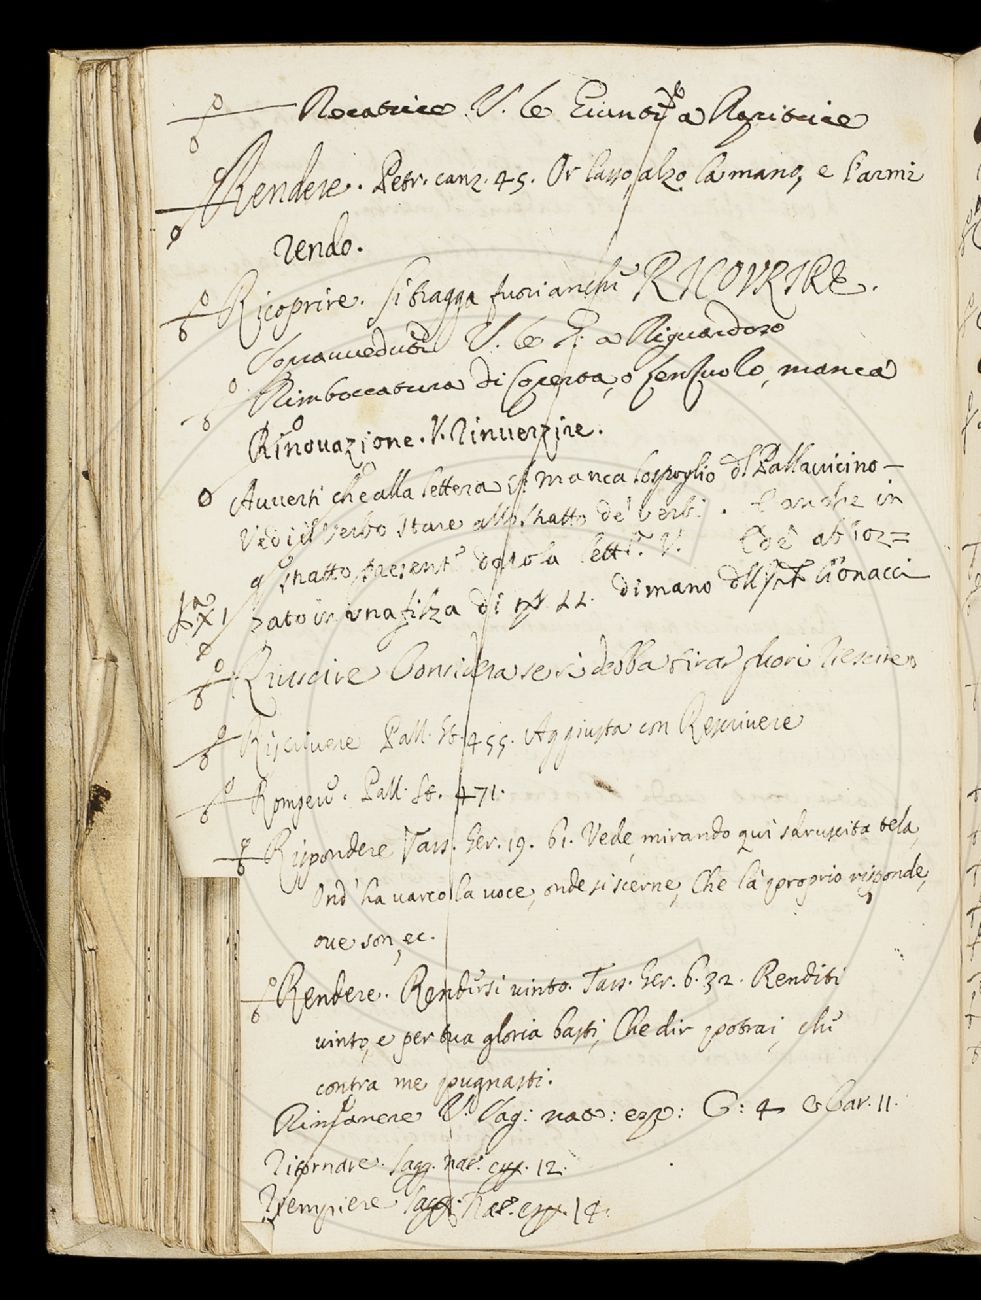 Recatrice. V. le Giunte a Rgritrice
Rendere. Petr. canz. 45. Or lasso, alzo la mano, e l'armi
rendo.
Ricoprire. Si tragga fuori anche RICOVRIRE.
Sopravveduto V. le G: a Riguardoso
Rimboccatura di Coperta, o Lenzuolo, manca
Rinovazione. V. Rinverzire.
Avverti che alla lettera S. manca lo spoglio dl Pallavicino –
Vedi il verbo stare allo stratto de' verbi. E anche in
qsto stratto presente dopo la lettra V. Ed è abboz=
zato in una filza di n° 22. di mano dll Bonacci
Riuscire Considera se si debba tirar fuori Riescire
Riscrivere Pall. St. 455. Aggiusta con Rescrivere
Rompere. Pall. St. 471.
Rispondere Tass. Ger. 19. 61. Vede, mirando qui sdruscita tela,
Ond' ha varco la voce, onde si scerne, Che là proprio risponde,
ove son, ec.
Rendere. Rendersi vinto. Tass. Ger. 6. 32. Renditi
vinto, e per tua gloria basti, Che dir potrai, che
contra me pugnasti.
Rinfanere V. Sag: nat: esp: C: 4 e Car. 11.
Ritornare. Sagg. nat. esp. 12.
Riempiere Sagg. nat. esp. 14.